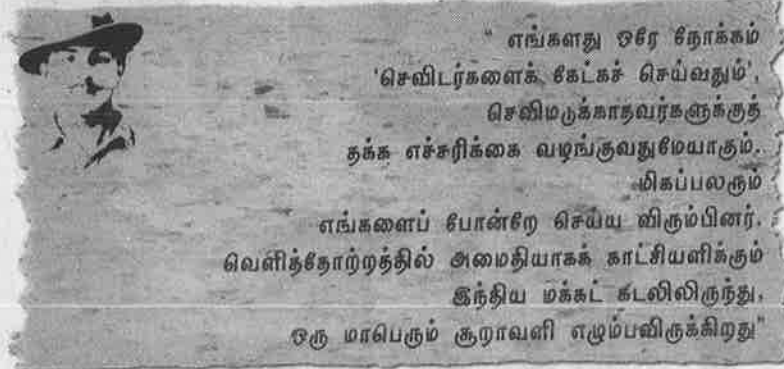 " எங்களது ஒரே நோக்கம்
'செவிடர்களைக் கேட்கச் செய்வதும்',
செவிமடுக்காதவர்களுக்குத்
தக்க எச்சரிக்கை வழங்குவதுமேயாகும்.
மிகப்பலரும்
எங்களைப் போன்றே செய்ய விரும்பினர்.
வெளித்தோற்றத்தில் அமைதியாகக் காட்சியளிக்கும்
இந்திய மக்கட் கடலிலிருந்து,
ஒரு மாபெரும் சூறாவளி எழும்பவிருக்கிறது"